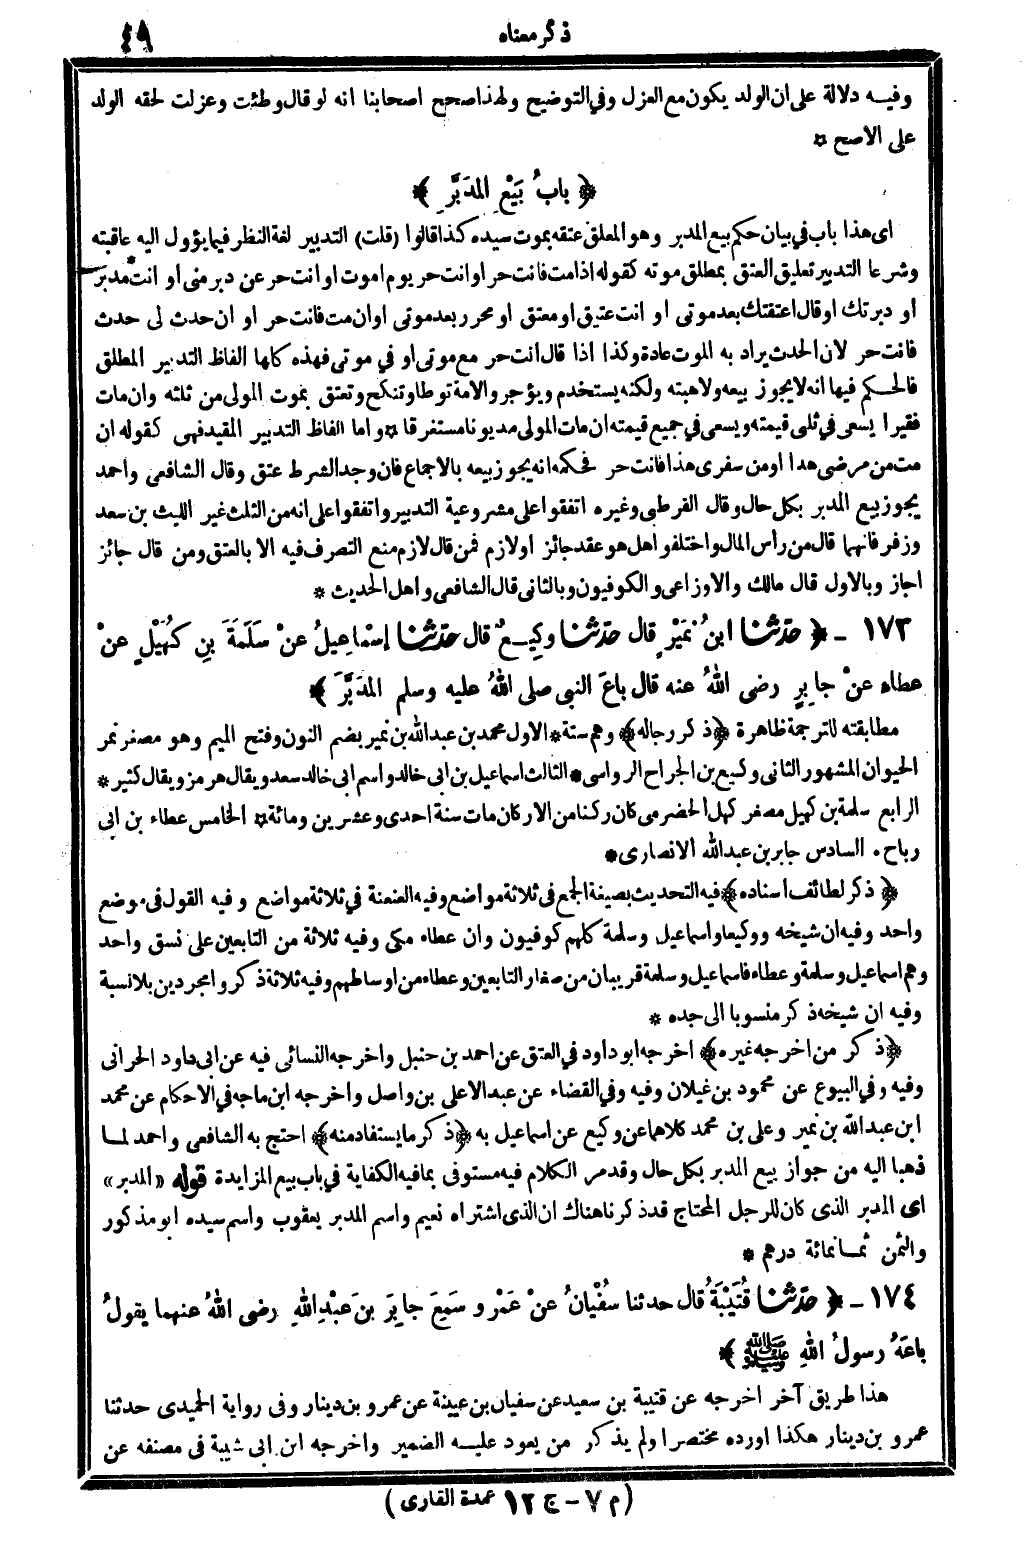 ذكر معناه
٤٩
وفيه دلالة على ان الولد يكون مع العزل وفي التوضيح ولهذا صحح اصحابنا انه لو قال وطئت وعزلت لحقه الولد
على الاصح *
﴿ بابُ بَيْعِ المدَبَّرِ ﴾
اى هذا باب في بيان حكم بيع المدبر وهو المعلق عتقه بموت سيده كذا قالوا (قلت) التدبير لغة النظر فيما يؤول اليه عاقبته
وشرعا التدبير تعليق العتق بمطلق موته كقوله اذامت فانت حر اوانت حر يوم اموت او انت حر عن دبر منى أو انت مدبر
او دبرتك او قال اعتقتك بعد موتى او انت عتيق او معتق او محرر بعد موتى اوان مت فانت حر او ان حدث لى حدث
فانت حر لان الحدث يراد به الموت عادة وكذا اذا قال انت حر مع موتى او في موتى فهذه كلها الفاظ التدبير المطلق
فالحكم فيها انه لا يجوز بيعه ولاهبته ولكنه يستخدم ويؤجر والامة توطا وتنكح وتعتق بموت المولى من ثلثه وان مات
فقيرا يسعى في ثلثى قيمته ويسعى في جميع قيمته ان مات المولى مديونا مستغرقا * واما الفاظ التدبير المقيد فهى كقوله ان
مت من مرضى هدا اومن سفرى هذا فانت حر فحكمه انه يجوز بيعه بالاجماع فان وجد الشرط عتق وقال الشافعى واحمد
يجوز بيع المدبر بكل حال وقال القرطبى وغيره اتفقوا على مشروعية التدبير واتفقوا على انه من الثلث غير الليث بن سعد
وزفر فانهما قالا من رأس المال واختلفوا هل هو عقد جائز او لازم فمن قال لازم منع التصرف فيه الا بالعتق ومن قال جائز
اجاز وبالاول قال مالك والاوزاعى والكوفيون وبالثانى قال الشافعى واهل الحديث *
١٧٣ - ﴿ حدّثنا ابنُ نُمَيْرٍ قال حدّثنا وكِيعٌ قال حدّثنا إسْماعِيلُ عنْ سَلَمَةَ بنِ كُهَيْلٍ عنْ
عطاء عنْ جابِرٍ رضى اللهُ عنه قال باعَ النبى صلى اللهُ عليه وسلم المدَبَّرَ ﴾
مطابقته للترجمة ظاهرة ﴿ذكر رجاله﴾ وهم ستة * الاول محمد بن عبدالله بن نمير بضم النون وفتح الميم وهو مصغر نمر
الحيوان المشهور الثانى وكيع بن الجراح الرواسى * الثالث اسماعيل بن ابى خالد واسم ابى خالد سعد ويقال هرمز ويقال كثير *
الرابع سلمة بن كهيل مصغر كهل الحضرمى كان ركنا من الاركان مات سنة احدى وعشرين ومائة * الخامس عطاء بن ابى
رباح. السادس جابر بن عبدالله الانصارى *
﴿ ذكر لطائف اسناده ﴾ فيه التحديث بصيغة الجمع فى ثلاثة مواضع وفيه العنعنة في ثلاثة مواضع وفيه القول فى موضع
واحد وفيه ان شيخه ووكيعا واسماعيل وسلمة كلهم كوفيون وان عطاء مكى وفيه ثلاثة من التابعين على نسق واحد
وهم اسماعيل وسلمة وعطاء فاسماعيل وسلمة قريبان من صغار التابعين وعطاء من اوساطهم وفيه ثلاثة ذكروا مجردين بلا نسبة
وفيه ان شيخه ذكر منسوبا الى جده *
﴿ذكر من اخرجه غيره﴾ اخرجه ابو داود في العتق عن احمد بن حنبل واخرجه النسائى فيه عن ابى داود الحرانى
وفيه وفي البيوع عن محمود بن غيلان وفيه وفي القضاء عن عبدالاعلى بن واصل واخرجه ابن ماجه في الاحكام عن محمد
ابن عبدالله بن نمير وعلى بن محمد كلاهما عن وكيع عن اسماعيل به ﴿ذكر ما يستفاد منه﴾ احتج به الشافعى واحمد لما
ذهبا اليه من جواز بيع المدبر بكل حال وقد مر الكلام فيه مستوفى بمافيه الكفاية في باب بيع المزايدة قوله «المدبر»
اى المدبر الذى كان للرجل المحتاج قد ذكرنا هناك ان الذى اشتراه نعيم واسم المدبر يعقوب واسم سيده ابو مذكور
والثمن ثمانمائة درهم *
١٧٤ - ﴿ حدّثنا قُتَيْبَةُ قال حدثنا سفْيانُ عنْ عَمْرٍو سَمِعَ جابِرَ بنَ عبْدِ اللهِ رضى اللهُ عنهما يقولُ
باعَهُ رسولُ اللهِ ﷺ ﴾
هذا طريق آخر اخرجه عن قتيبة بن سعيد عن سفيان بن عيينة عن عمرو بن دينار وفى رواية الحميدى حدثنا
عمرو بن دينار هكذا اورده مختصرا ولم يذكر من يعود عليه الضمير واخرجه ابن ابى شيبة فى مصنفه عن
(م ٧ - ج ١٢ عمدة القارى)